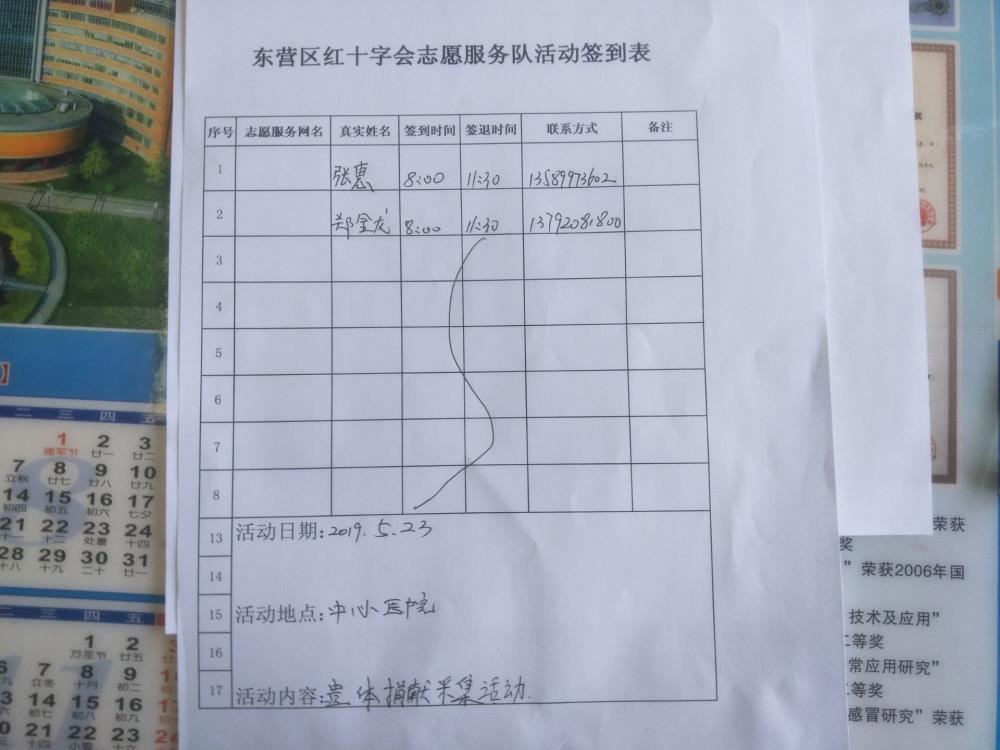 东营区红十字会志愿服务队活动签到表
序号 志愿服务网名 真实姓名 签到时间 签退时间 联系方式 备注
1 张惠 8:00 11:30 13589973602
2 郑金龙 8:00 11:30 13792081800
3
4
5
6
7
8
13 活动日期:2019.5.23
14
15 活动地点:中心医院
16
17 活动内容:遗体捐献采集活动.
二 三 四 五
1 2 3
建军节 廿一 廿二
7 8 9 10
立秋 廿七 廿八 廿九
14 15 16 17
初四 初五 初六 七夕
21 22 23 24
十一 十二 处暑 十四
28 29 30 31
十八 十九 二十 廿一
二 三 四 五
1 2
万圣节 廿五
7 8 9
立冬 十月 初二
14 15 16
初七 初八 初九
21 22 23
24
荣获
奖
” 荣获2006年国
技术及应用”
二等奖
常应用研究”
二等奖
感冒研究” 荣获